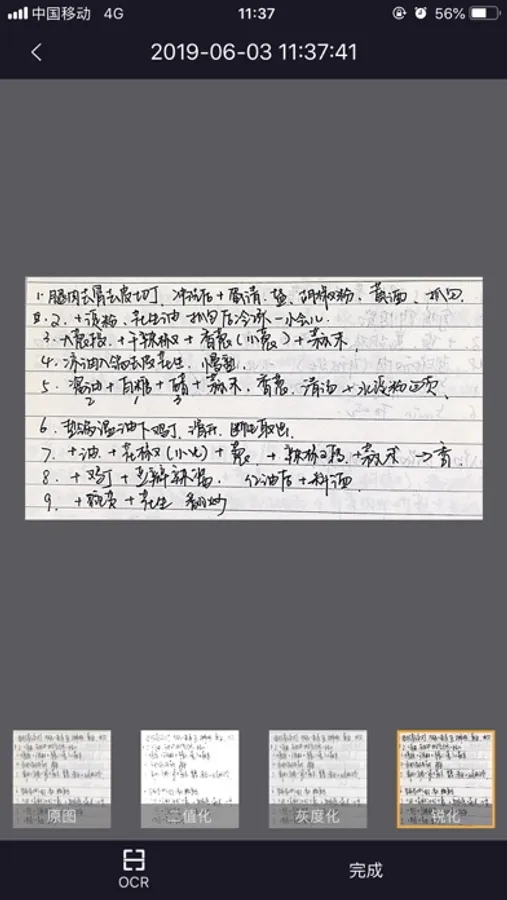 中国移动 4G 11:37 56%
2019-06-03 11:37:41
1. 腿肉去骨去皮切丁, 冲洗后+蛋清. 盐. 胡椒粉. 黄酒. 抓匀.
2. +淀粉. 花生油 抓匀后冷冻一小会儿.
3. 大葱段. +干辣椒 + 香葱(小葱) + 蒜末.
4. 凉油入锅去皮花生. 慢
5. 酱油 + 白糖 + 醋 + 蒜末. 香葱. 清汤 + 水淀粉
2 1 3
6. 热锅温油下鸡丁, 滑开. 取出.
7 +油 + 花椒(小火) + 葱 + 辣椒段 + 蒜末 → 香
8. + 鸡丁 + 豆瓣辣酱. 红油后 + 料酒.
9. + 花生 翻炒
原图
二值化
灰度化
锐化
OCR
完成